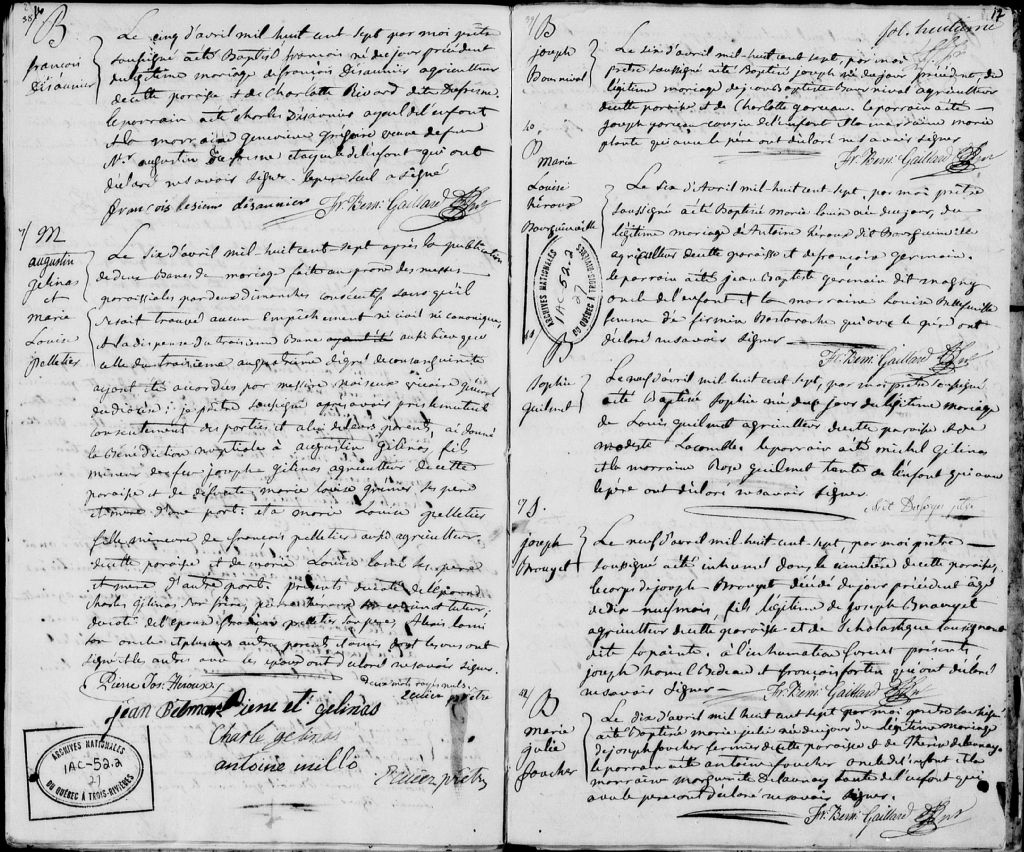 38
B
françois
Désaunier
Le cinq d'avril mil huit cent sept par moi prêtre
soussigné a été Baptisé françois né du jour précédent
du légitime mariage de françois Désaunier agriculteur
de cette paroisse et de Charlotte Rivard dite Dufresne
le parrain a été charles Désaunier ayeul de l'enfant
et la marraine Geneviève Grégoire veuve de feu
augustin Dufresne et ayeule de l'enfant qui ont
déclaré ne savoir signer le père seul a signé
françois lesieur désaunier Fr. Bern. Gaillard
M
augustin
gélinas
et
marie
Louise
Pelletier
Le six d'avril mil-huit cent sept après la publication
de deux Bancs de mariage faite au prone des messes
paroissiales par deux dimanches consécutifs sans qu'il
se sait trouvé aucun empêchement ni civil ni canonique,
et la dispense du troisième Banc ayant été aussi bien que
celle du troisième au quatrième dégré de consanguinité
ayant été accordées par messire Noiseux vicaire général
du diocèse; je prêtre soussigné après avoir pris le mutuel
consentement des parties et celui de leurs parents, ai donné
la Bénédiction nuptiale à augustin gélinas fils
mineur de feu joseph gélinas agriculteur de cette
paroisse et de défunte marie louise grenier ses père
et mere d'une part: et à marie Louise pelletier
fille mineure de françois pelletier aussi agriculteur
de cette paroisse et de marie Louise lami ses père
et mere d'autre part: présents du coté de l'époux
charles Gélinas son frère, pierre heroux son cousin et tuteur;
du coté de l'épouse françois pelletier son père, alexis lami
son oncle et plusieurs autres parents et amis dont les uns ont
signé et les autres avec les époux ont déclaré ne savoir signer.
deux mots rayés nuls
Pierre Jos. Heroux
Lecuier prêtre
jean Belmar Pierre et gelinas
Charle gelinas
antoine millo
ARCHIVES NATIONALES
1AC-52.2
27
DU QUÉBEC À TROIS-RIVIÈRES
17
fol. huitième
39
B
joseph
Bournival
Le six d'avril mil huit cent sept, par moi
prêtre soussigné a été Baptisé joseph né du jour précédent, du
légitime mariage de jean Baptiste Bournival agriculteur
de cette paroisse et de Charlotte garceau. le parrain a été
joseph garceau cousin de l'enfant et la marraine marie
plante qui avec le père ont déclaré ne savoir signer
Fr. Bern. Gaillard
40
B
marie
Louise
héroux
Bourguinville
Le six d'Avril mil huit cent sept, par moi prêtre
soussigné a été Baptisé marie louise née du jour, du
légitime mariage de Antoine héroux dit Bourguinville
agriculteur de cette paroisse et de françoise germain.
le parrain a été jean Baptiste germain dit magny
oncle de l'enfant et la marraine Louise Bellefeuille
femme de firmin Bastarache qui avec le père ont
déclaré ne savoir signer
Fr. Bern. Gaillard
ARCHIVES NATIONALES
1AC-52.2
27
DU QUÉBEC À TROIS-RIVIÈRES
41
B
Sophie
guilmet
Le neuf d'avril mil huit cent sept, par moi prêtre soussigné
a été Baptisé Sophie née du jour du légitime mariage
de Louis guilmet agriculteur de cette paroisse et de
modeste Lacombe. le parrain a été michel Gélinas
et la marraine Rose guilmet tante de l'enfant qui avec
le père ont déclaré ne savoir signer.
S.
joseph
Brouyet
Le neuf d'avril mil huit cent sept, par moi prêtre
soussigné a été inhumé dans le cimetière de cette paroisse,
le corps de joseph Brouyet décédé du jour précédent âgé
de dix neuf mois, fils légitime de joseph Brouyet
agriculteur de cette paroisse et de Scholastique
dite la pointe. à l'inhumation furent présents
joseph hamel Bedeau et françois fortin qui ont déclaré
ne savoir signer
Fr. Bern. Gaillard
42
B
marie
julie
foucher
Le dix d'avril mil huit cent sept par moi prêtre soussigné
a été Baptisé marie julie née du jour du légitime mariage
de joseph foucher fermier de cette paroisse et de Thérèse Delaunay.
le parrain a été antoine foucher oncle de l'enfant et la
marraine marguerite Delaunay tante de l'enfant qui
avec le père ont déclaré ne savoir signer.
Fr. Bern. Gaillard